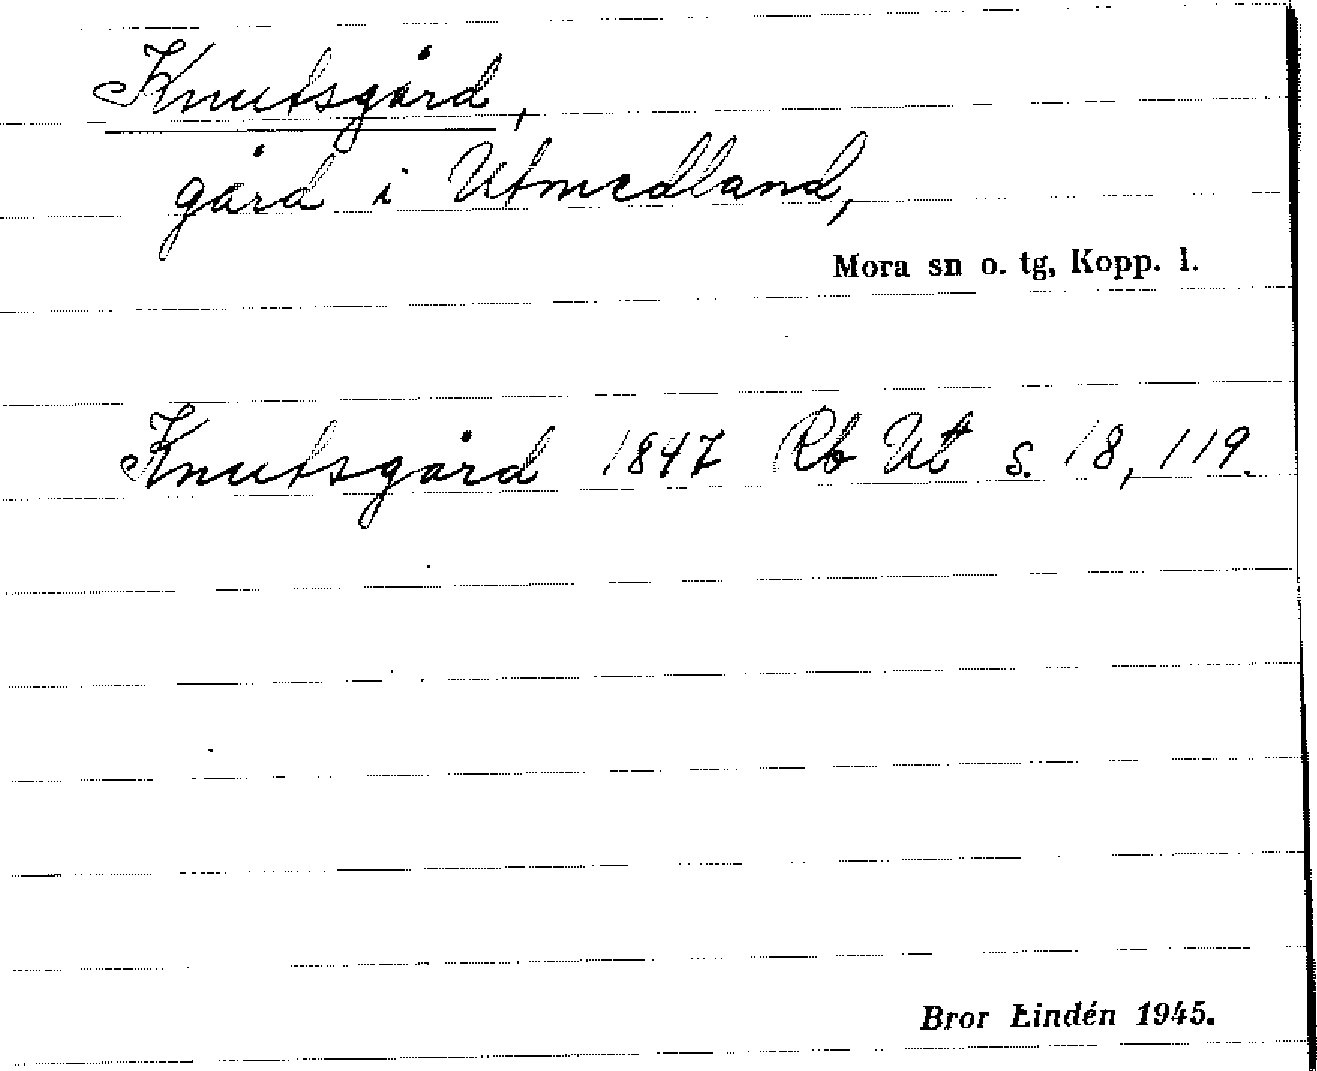 Knutsgård,
gård i Utmedland,
Mora sn o. tg, Kopp. l.
Knutsgård 1847 Rb Ut s. 18, 119.
Bror Lindén 1945.